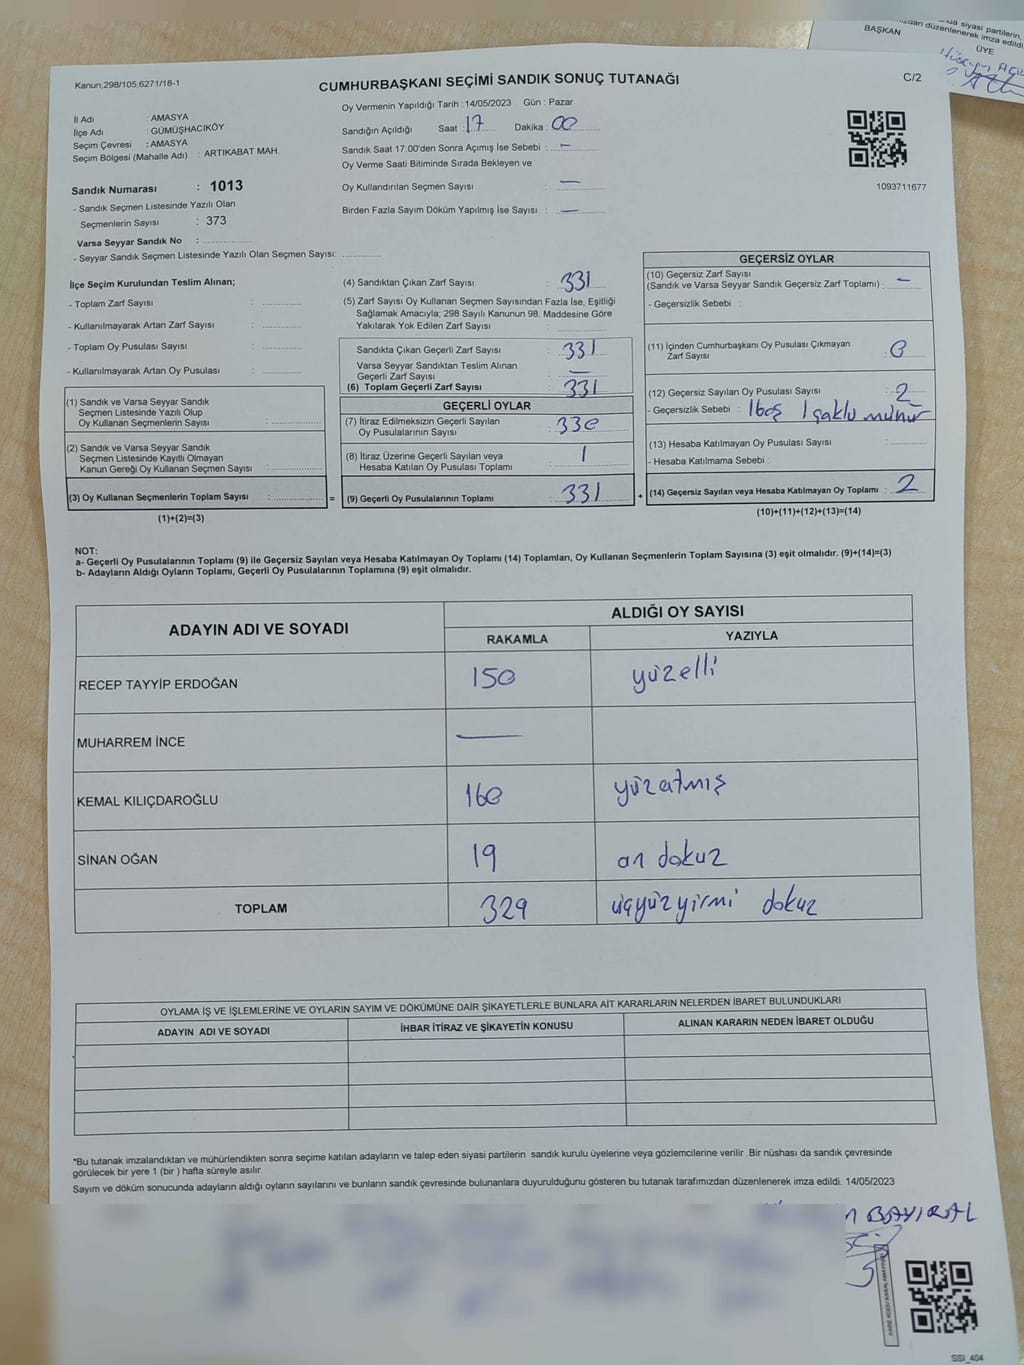 zından düzenlenerek imza edildi
BAŞKAN
ÜYE
Kanun;298/105;6271/18-1
CUMHURBAŞKANI SEÇİMİ SANDIK SONUÇ TUTANAĞI
C/2
Oy Vermenin Yapıldığı Tarih : 14/05/2023 Gün : Pazar
İl Adı : AMASYA
İlçe Adı : GÜMÜŞHACIKÖY
Seçim Çevresi : AMASYA
Seçim Bölgesi (Mahalle Adı) : ARTIKABAT MAH.
Sandığın Açıldığı Saat : 17 Dakika : 00
Sandık Saat 17:00'den Sonra Açımış İse Sebebi : -
Oy Verme Saati Bitiminde Sırada Bekleyen ve
Oy Kullandırılan Seçmen Sayısı : -
Birden Fazla Sayım Döküm Yapılmış İse Sayısı : -
1093711677
Sandık Numarası : 1013
- Sandık Seçmen Listesinde Yazılı Olan
Seçmenlerin Sayısı : 373
Varsa Seyyar Sandık No :
- Seyyar Sandık Seçmen Listesinde Yazılı Olan Seçmen Sayısı:
İlçe Seçim Kurulundan Teslim Alınan;
- Toplam Zarf Sayısı :
- Kullanılmayarak Artan Zarf Sayısı :
- Toplam Oy Pusulası Sayısı :
- Kullanılmayarak Artan Oy Pusulası :
(1) Sandık ve Varsa Seyyar Sandık
Seçmen Listesinde Yazılı Olup
Oy Kullanan Seçmenlerin Sayısı :
(2) Sandık ve Varsa Seyyar Sandık
Seçmen Listesinde Kayıtlı Olmayan
Kanun Gereği Oy Kullanan Seçmen Sayısı :
(3) Oy Kullanan Seçmenlerin Toplam Sayısı : =
(1)+(2)=(3)
(4) Sandıktan Çıkan Zarf Sayısı : 331
(5) Zarf Sayısı Oy Kullanan Seçmen Sayısından Fazla İse, Eşitliği
Sağlamak Amacıyla; 298 Sayılı Kanunun 98. Maddesine Göre
Yakılarak Yok Edilen Zarf Sayısı :
Sandıkta Çıkan Geçerli Zarf Sayısı : 331
Varsa Seyyar Sandıktan Teslim Alınan
Geçerli Zarf Sayısı : -
(6) Toplam Geçerli Zarf Sayısı : 331
GEÇERLİ OYLAR
(7) İtiraz Edilmeksizin Geçerli Sayılan
Oy Pusulalarının Sayısı : 330
(8) İtiraz Üzerine Geçerli Sayılan veya
Hesaba Katılan Oy Pusulası Toplamı : 1
(9) Geçerli Oy Pusulalarının Toplamı : 331 +
GEÇERSİZ OYLAR
(10) Geçersiz Zarf Sayısı
(Sandık ve Varsa Seyyar Sandık Geçersiz Zarf Toplamı) : -
- Geçersizlik Sebebi :
(11) İçinden Cumhurbaşkanı Oy Pusulası Çıkmayan
Zarf Sayısı : 0
(12) Geçersiz Sayılan Oy Pusulası Sayısı : 2
- Geçersizlik Sebebi : 1 boş 1 şaklu mühür
(13) Hesaba Katılmayan Oy Pusulası Sayısı :
- Hesaba Katılmama Sebebi :
(14) Geçersiz Sayılan veya Hesaba Katılmayan Oy Toplamı : 2
(10)+(11)+(12)+(13)=(14)
NOT:
a- Geçerli Oy Pusulalarının Toplamı (9) ile Geçersiz Sayılan veya Hesaba Katılmayan Oy Toplamı (14) Toplamları, Oy Kullanan Seçmenlerin Toplam Sayısına (3) eşit olmalıdır. (9)+(14)=(3)
b- Adayların Aldığı Oyların Toplamı, Geçerli Oy Pusulalarının Toplamına (9) eşit olmalıdır.
ADAYIN ADI VE SOYADI
ALDIĞI OY SAYISI
RAKAMLA YAZIYLA
RECEP TAYYİP ERDOĞAN 150 yüzelli
MUHARREM İNCE —
KEMAL KILIÇDAROĞLU 160 yüzatmış
SİNAN OĞAN 19 on dokuz
TOPLAM 329 üçyüzyirmi dokuz
OYLAMA İŞ VE İŞLEMLERİNE VE OYLARIN SAYIM VE DÖKÜMÜNE DAİR ŞİKAYETLERLE BUNLARA AİT KARARLARIN NELERDEN İBARET BULUNDUKLARI
ADAYIN ADI VE SOYADI İHBAR İTİRAZ VE ŞİKAYETİN KONUSU ALINAN KARARIN NEDEN İBARET OLDUĞU
*Bu tutanak imzalandıktan ve mühürlendikten sonra seçime katılan adayların ve talep eden siyasi partilerin sandık kurulu üyelerine veya gözlemcilerine verilir .Bir nüshası da sandık çevresinde
görülecek bir yere 1 (bir ) hafta süreyle asılır.
Sayım ve döküm sonucunda adayların aldığı oyların sayılarını ve bunların sandık çevresinde bulunanlara duyurulduğunu gösteren bu tutanak tarafımızdan düzenlenerek imza edildi. 14/05/2023
BAYIRAL
KARE KODU KARALAMAYINIZ
SSI_404